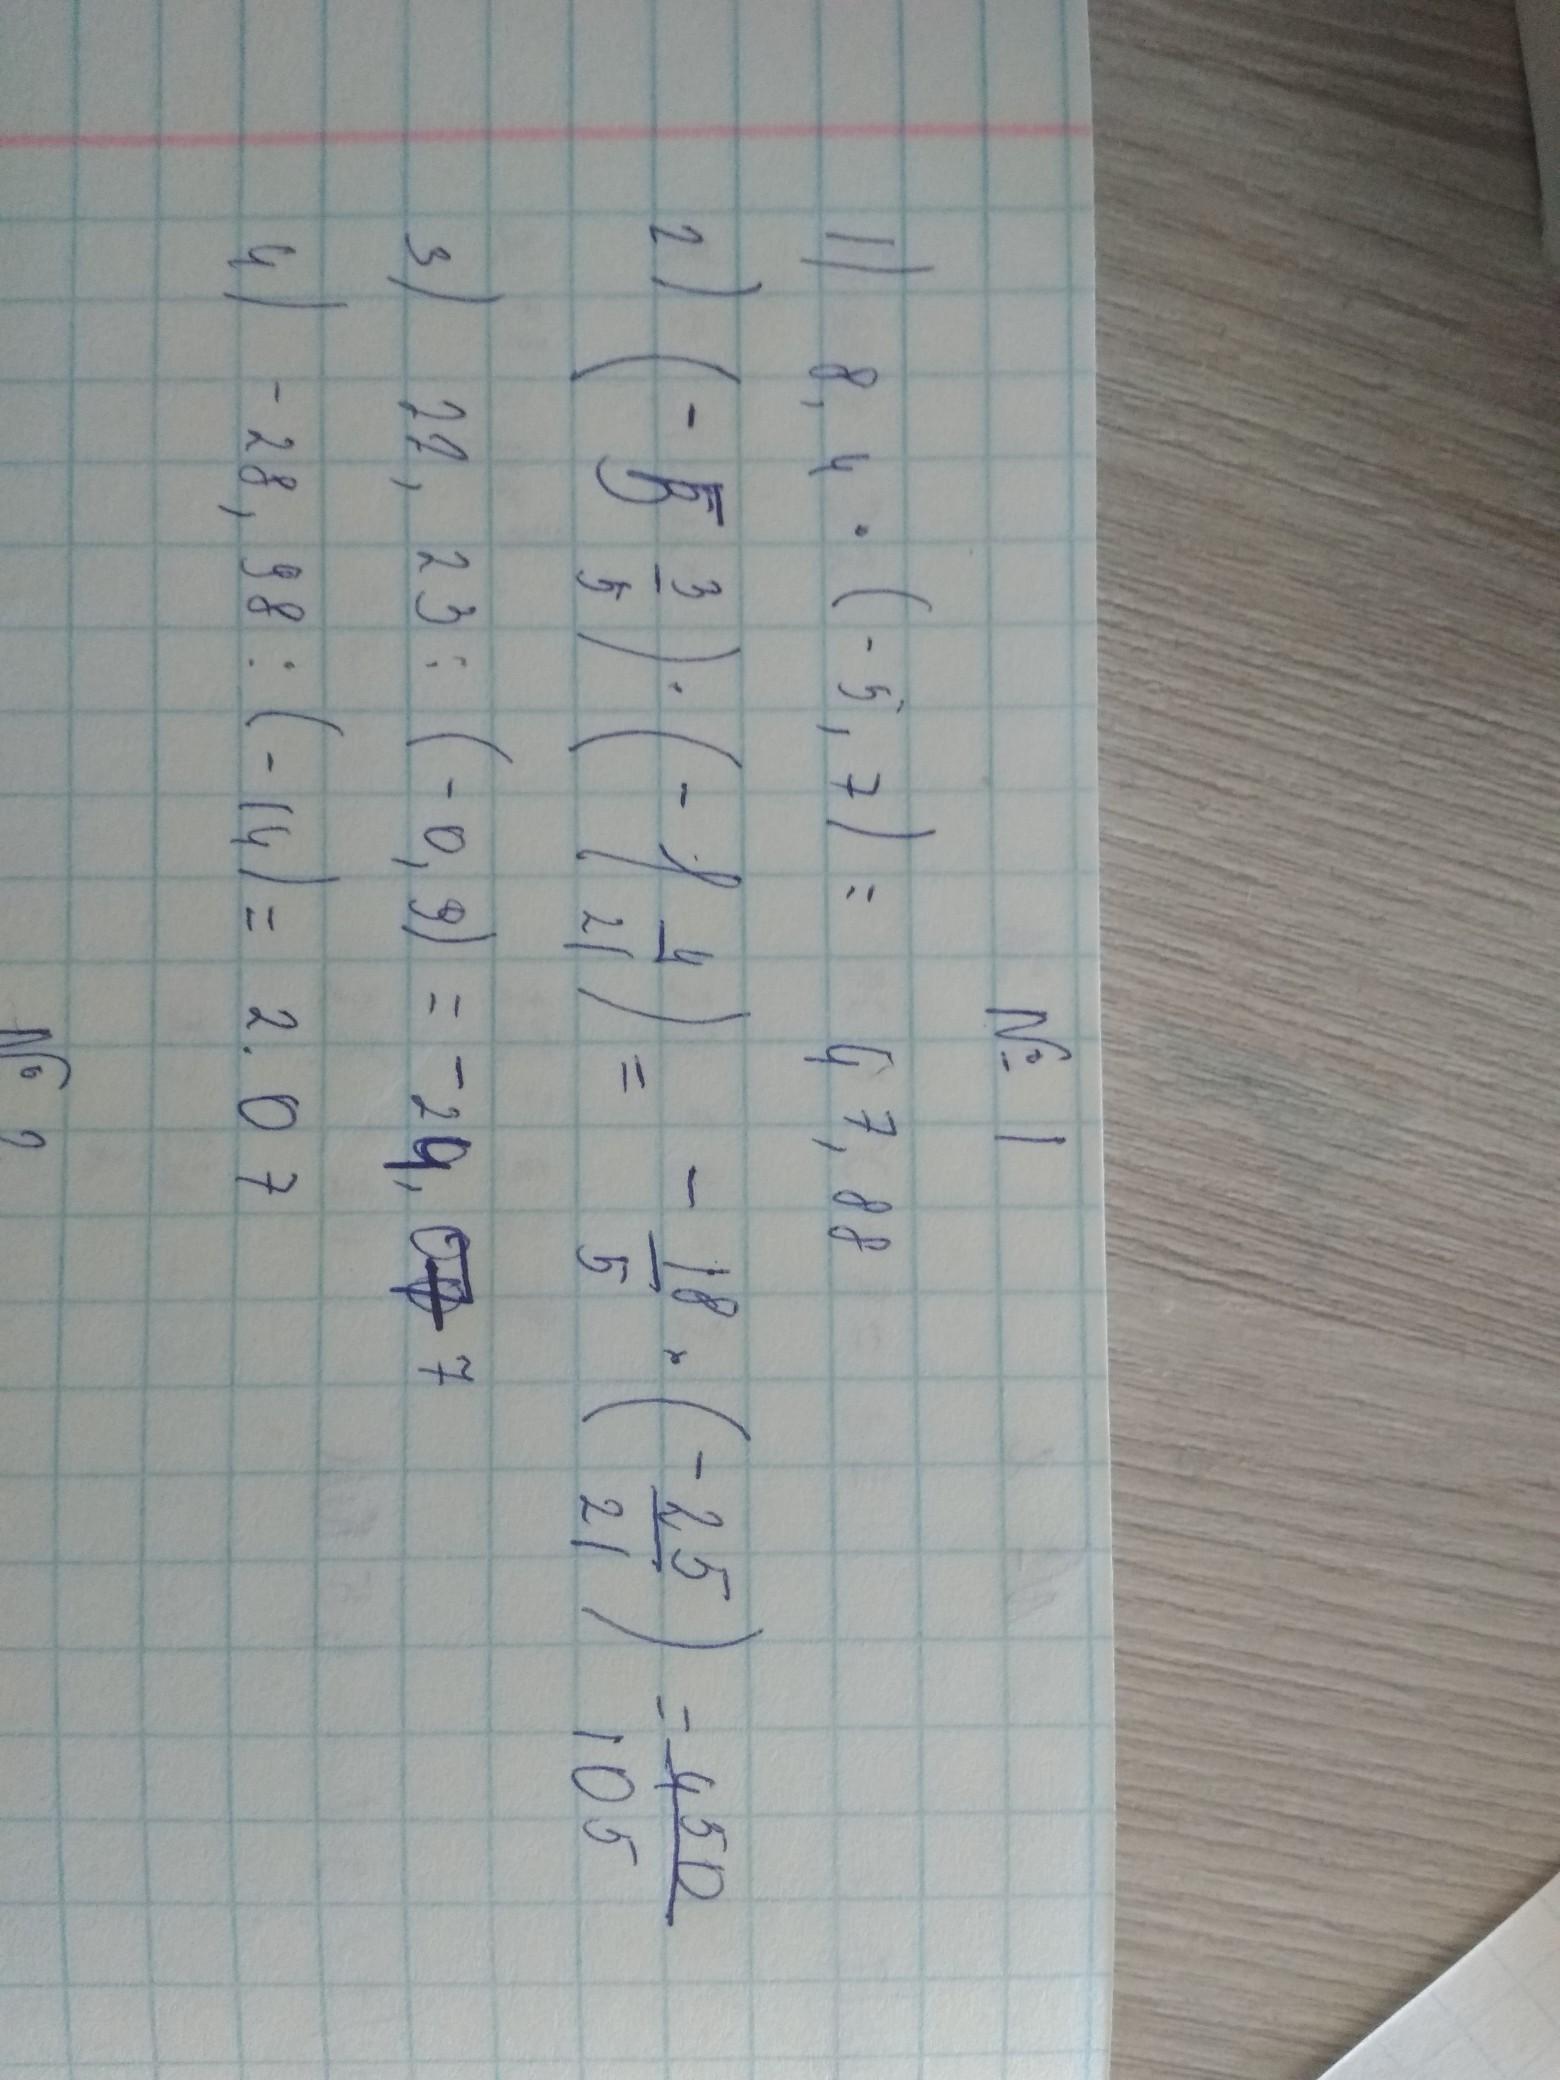 № 1
1) 8,4 · (-5,7) = 47,88
2) (-5 3/5) · (-1 4/21) = -18/5 · (-25/21) = -450/105
3) 22,23 : (-0,9) = -24,7
4) -28,98 : (-14) = 2.07
№ 2